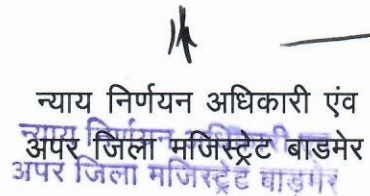 न्याय निर्णयन अधिकारी एंव
अपर जिला मजिस्ट्रेट बाडमेर
न्याय निर्णयन अधिकारी एवं
अपर जिला मजिस्ट्रेट बाड़मेर